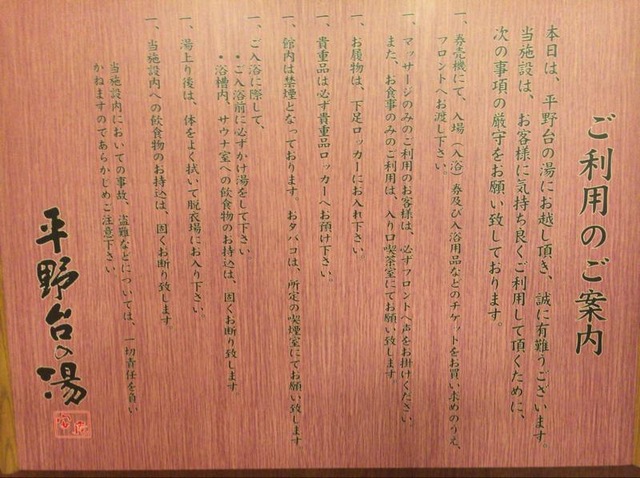 ご利用のご案内
本日は、平野台の湯にお越し頂き、誠に有難うございます。
当施設は、お客様に気持ち良くご利用して頂くために、
次の事項の厳守をお願い致しております。
一、券売機にて、入場（入浴）券及び入浴用品などのチケットをお買い求めのうえ、
フロントへお渡し下さい。
一、マッサージのみのご利用のお客様は、必ずフロントへ声をお掛けください。
また、お食事のみのご利用は、入り口喫茶室にてお願い致します
一、お履物は、下足ロッカーにお入れ下さい。
一、貴重品は必ず貴重品ロッカーへお預け下さい。
一、館内は禁煙となっております。おタバコは、所定の喫煙室にてお願い致します
一、ご入浴に際して、
・ご入浴前に必ずかけ湯をして下さい
・浴槽内、サウナ室への飲食物のお持込は、固くお断り致します
一、湯上り後は、体をよく拭いて脱衣場にお入り下さい。
一、当施設内への飲食物のお持込は、固くお断り致します。
当施設内においての事故、盗難などについては、一切責任を負い
かねますのであらかじめご注意下さい
平野台の湯